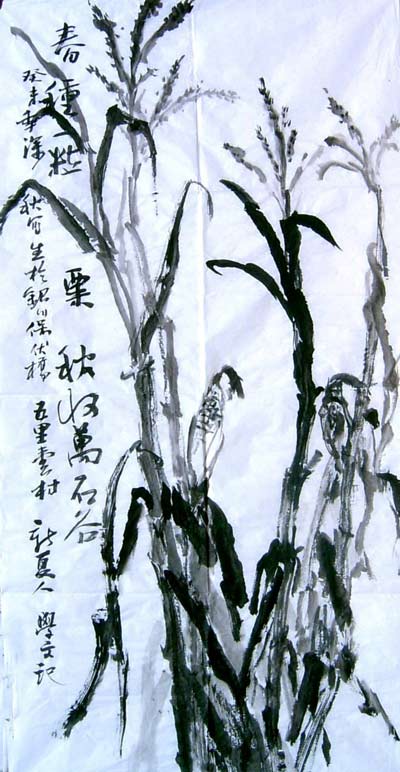 春種一粒粟 秋收萬石谷
癸未年深秋寫生於銀川保伏橋 五里雲村 夏人 學文記